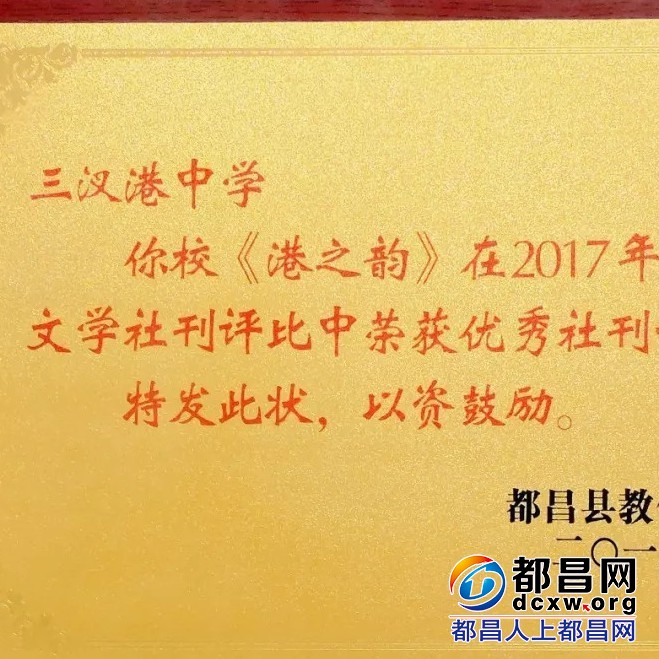 三汊港中学
你校《港之韵》在2017年
文学社刊评比中荣获优秀社刊
特发此状，以资鼓励。
都昌县教
二〇一
都昌网
dcxw.org
都昌人上都昌网